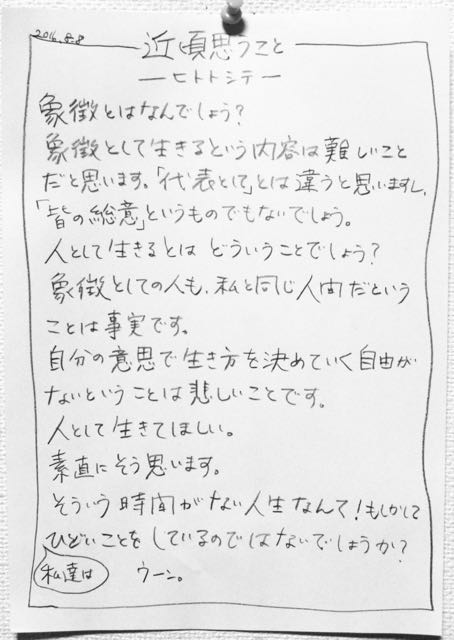 2016.8.8
近頃思うこと
ーヒトトシテー
象徴とはなんでしょう?
象徴として生きるという内容は難しいこと
だと思います。「代表として」とは違うと思いますし、
「皆の総意」というものでもないでしょう。
人として生きるとは どういうことでしょう?
象徴としての人も、私と同じ人間だという
ことは事実です。
自分の意思で生き方を決めていく自由が
ないということは悲しいことです。
人として生きてほしい。
素直にそう思います。
そういう時間がない人生なんて!もしかして
ひどいことをしているのではないでしょうか?
私達は
ウーン。